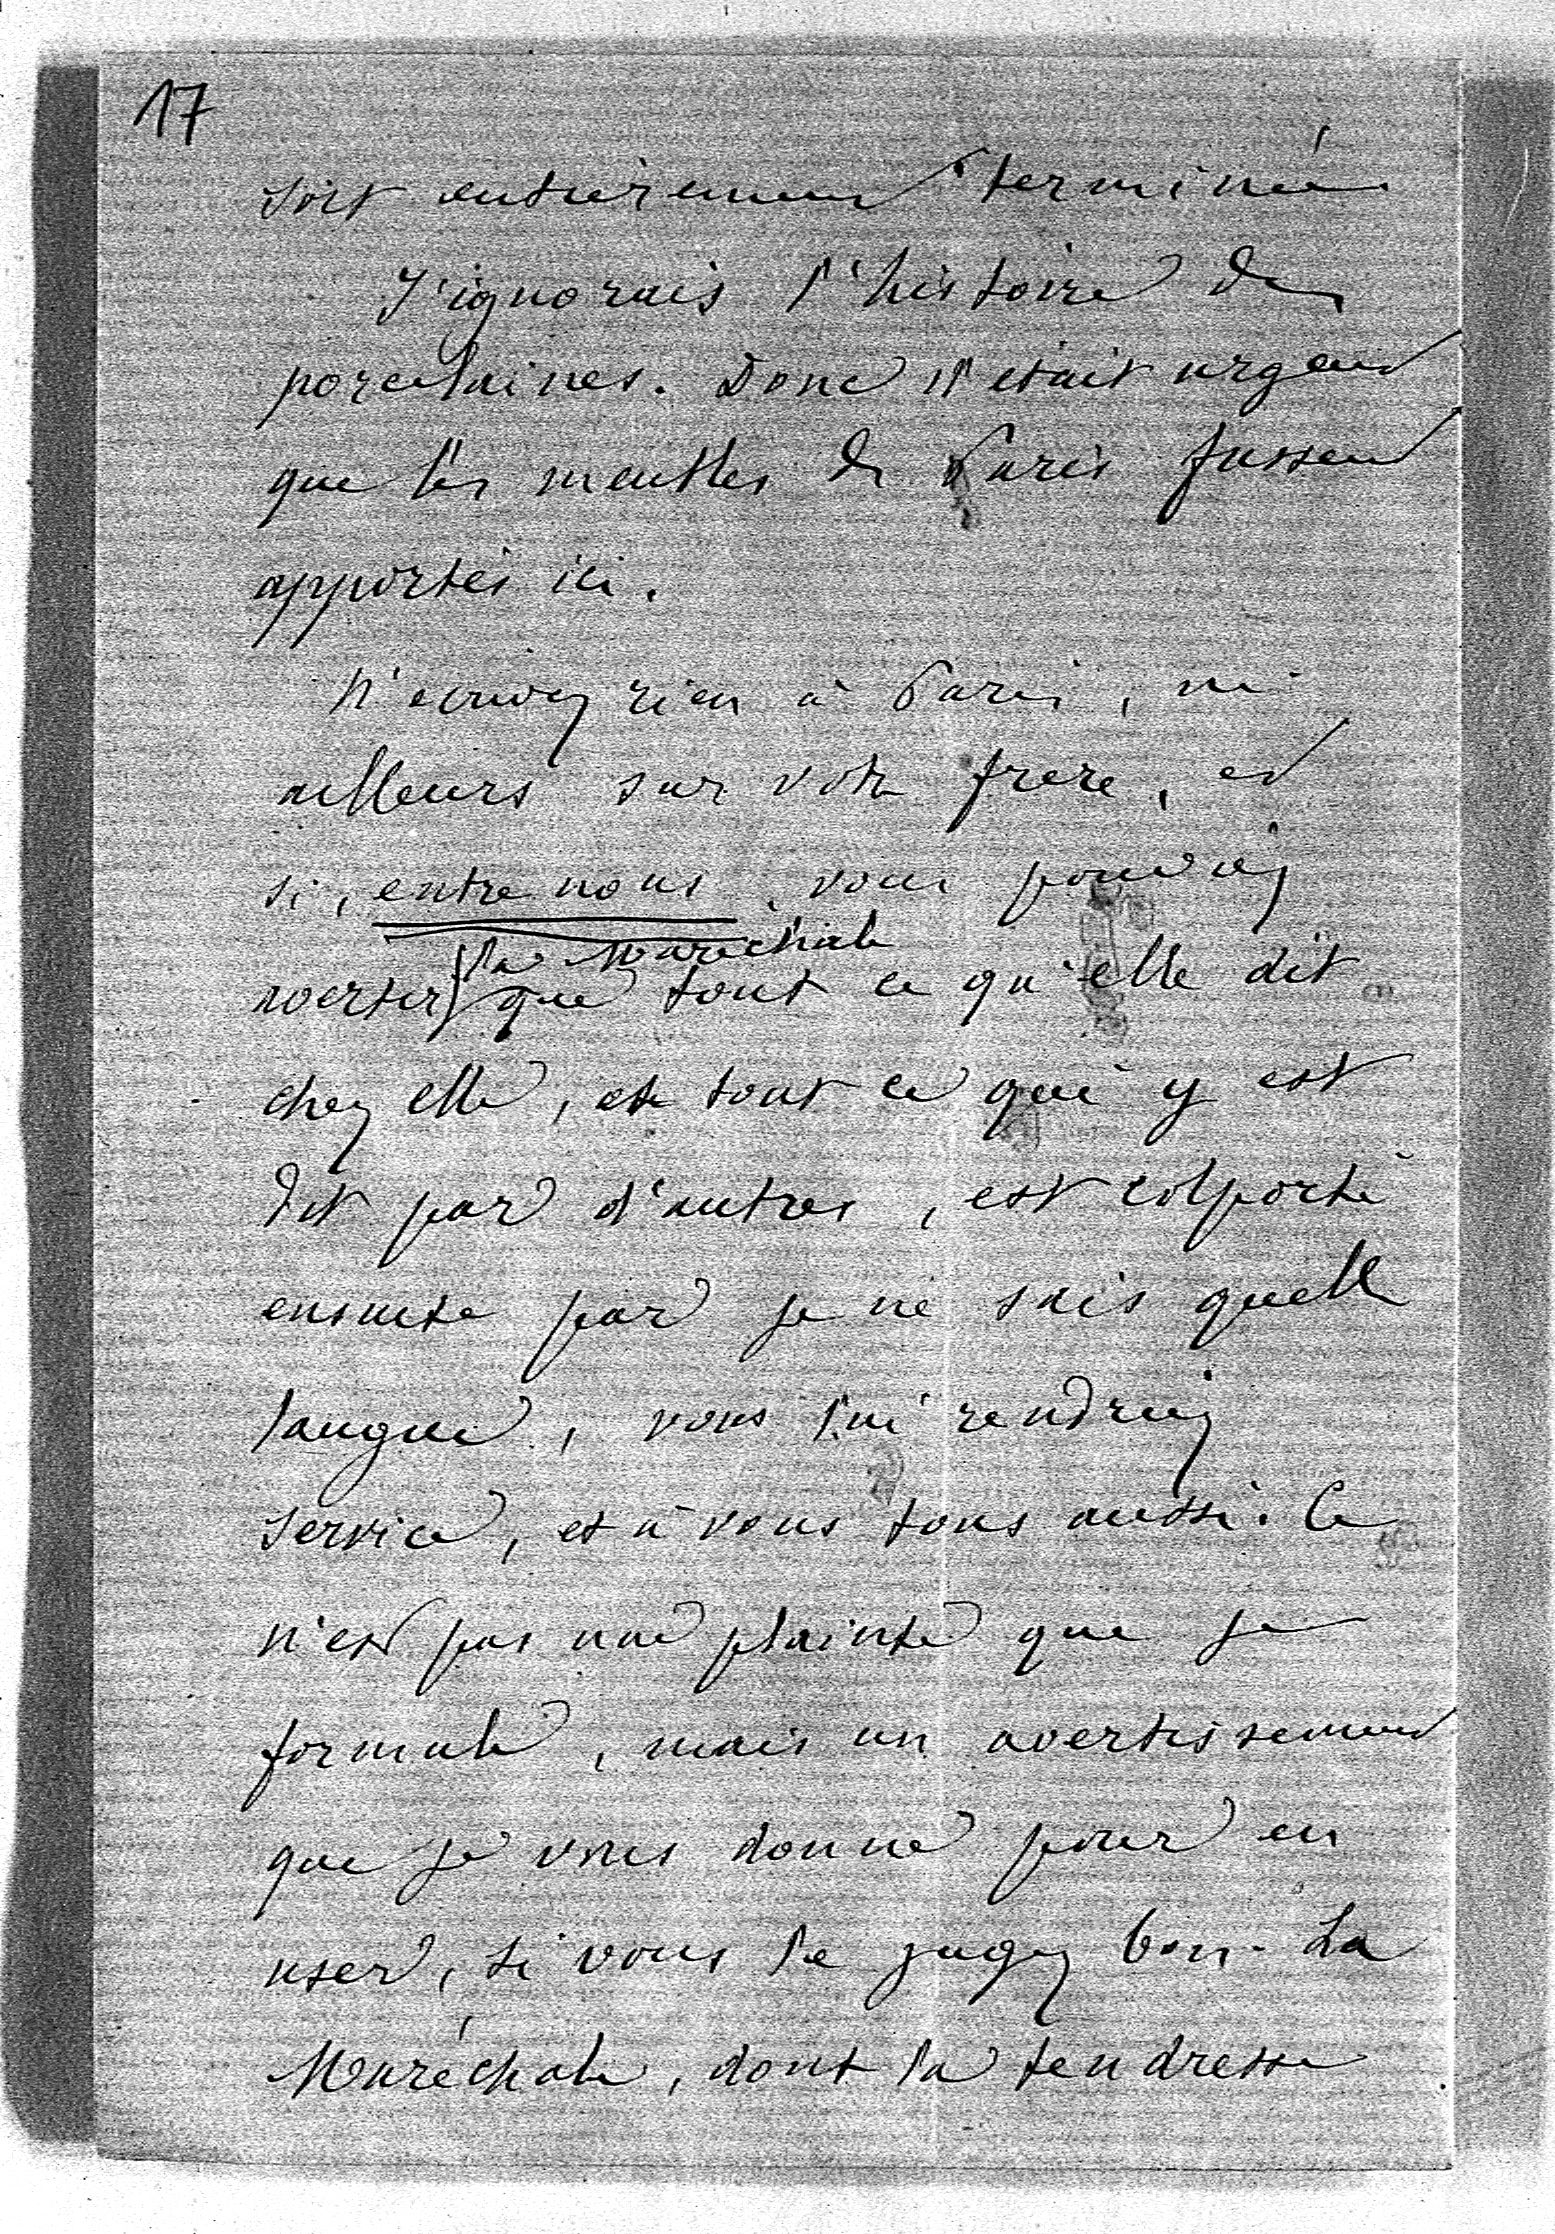 17
soit entièrement terminée
J'ignorais l'histoire des
porcelaines. Donc il était urgent
que les meubles de Paris fussent
apportés ici.
N'écrivez rien à Paris, ni
ailleurs sur votre frère, et
si, entre nous, vous pouviez
la Maréchale
avertir que tout ce qu'elle dit
chez elle, et tout ce qui y est
dit par d'autres, est colporté
ensuite par je ne sais quelle
langue, vous lui rendriez
service, et à vous tous aussi. Ce
n'est pas une plainte que je
formule, mais un avertissement
que je vous donne pour en
user, si vous le jugez bon. La
Maréchale, dont la tendresse